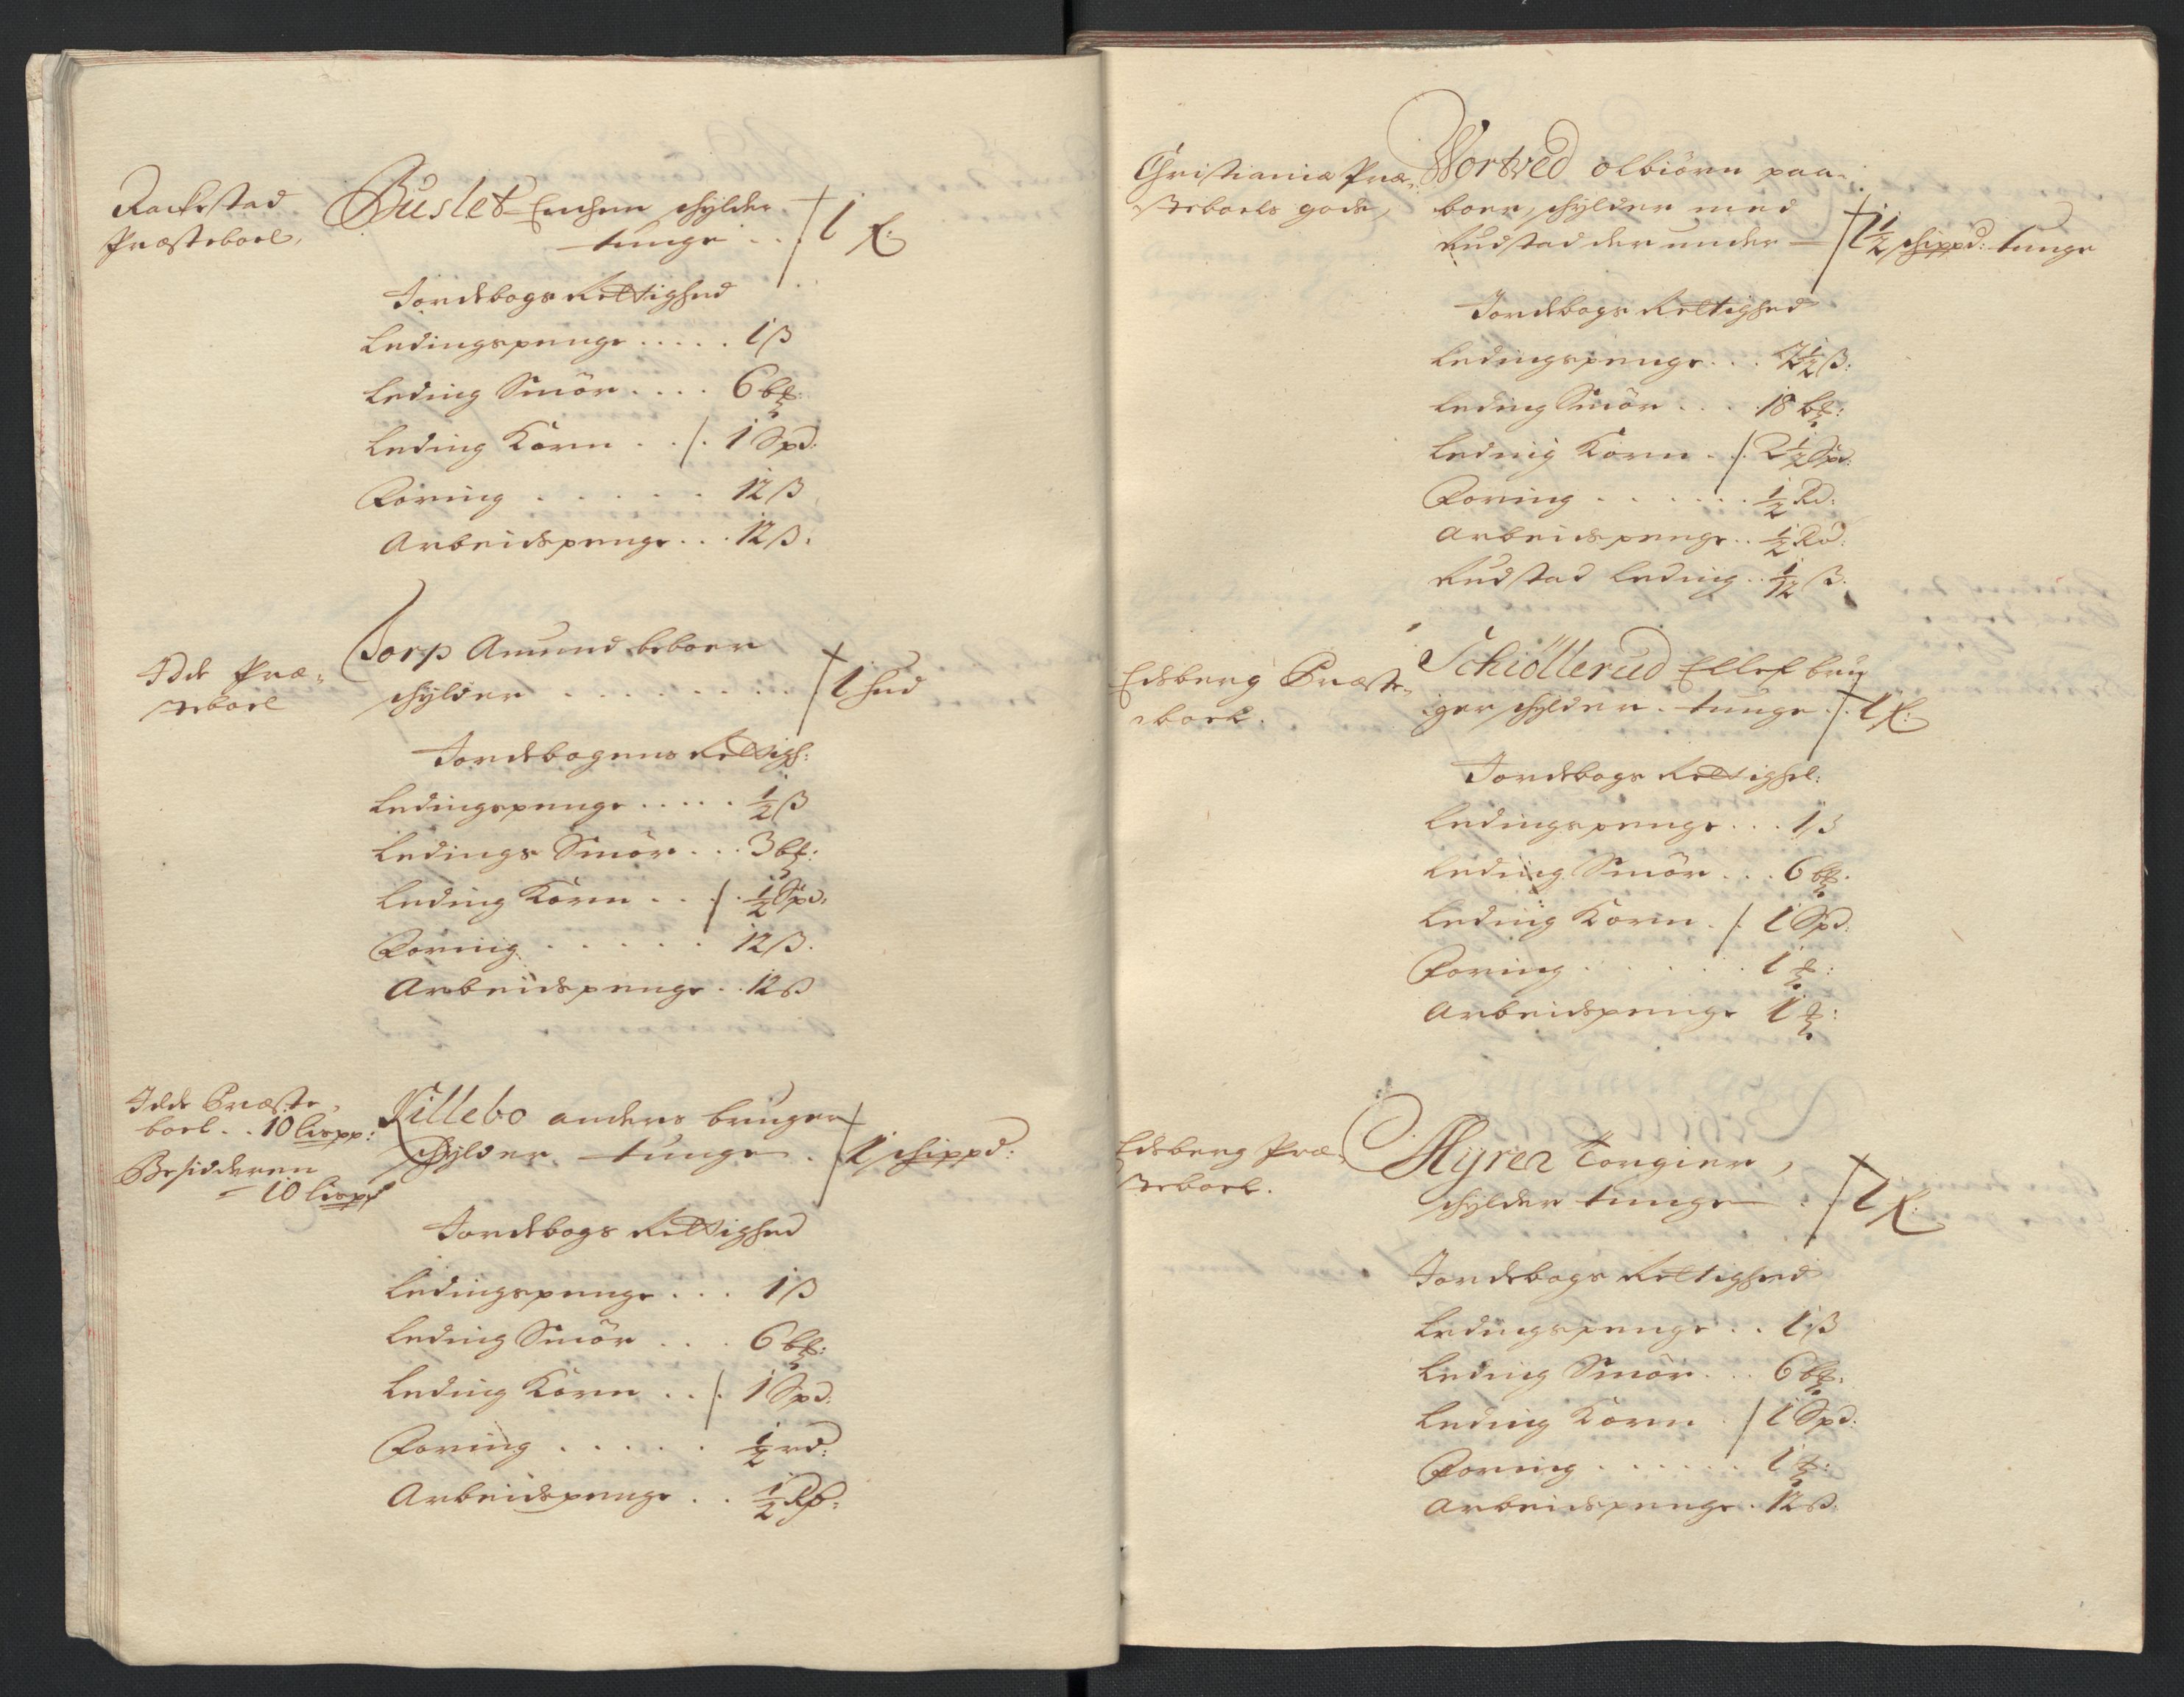 Rackestad
Præsteboel,
Buslet Enchen schylder
tunge . . 1 
Jordebogs Rettighed
Ledingspenge . . . . . 1 ß
Leding Smör . . . . 6 
Leding Korn . . /. 1 Spd:
Foring . . . . . . 12 ß
Arbeidspenge . . . 12 ß.
Idde Præ-
steboel
Torp Amund beboer
schylder . . . . . . . . 1 hud
Jordebogens Rettigh:
Ledingspenge . . . . . ½ ß
Ledings Smör . . . 3 
Leding Korn . . /. ½ Spd:
Foring . . . . . . 12 ß.
Arbeidspenge . . 12 ß
Idde Præste-
boel . . 10 lispp:
Besidderen
- 10 lispd
Killebo anders bruger
schylder tunge . 1 schippd:
Jordebogs Rettighed
Ledingspenge . . . 1 ß
Leding Smör . . . 6 
Leding Korn . . /. 1 Spd:
Foring . . . . . ½ rd:
Arbeidspenge . . ½ Rd:
Christiania Præ-
steboels gods,
Wortved olbiörn paa-
boer, schylder med
Rudstad der under — 1½ schippd: tunge
Jordebogs Rettighed
Ledingspenge . . . ß:
Leding Smör . . . . 18 
Leding Korn . /. 2½ Spd:
Foring . . . . . . ½ Rd:
Arbeidspenge . . ½ Rd:
Rudstad Leding . . ½ ß.
Edsberg Præste-
boel.
Schiöllerud Ellef bru
ger schylder . tunge . 1 
Jordebogs Rettighed:
Ledingspenge . . . 1 ß
Leding Smör . . . 6 
Leding Korn . /. 1 Spd:
Foring . . . . . . 1 
Arbeidspenge 1 
Edsberg Præ-
steboel.
Myrer Torgier,
schylder tunge . 1 
Jordebogs Rettighed
Ledingspenge . . 1 ß
Leding Smör . . . 6 
Leding Korn . / 1 Spd:
Foring . . . . . . 1 
Arbeidspenge . 12 ß.